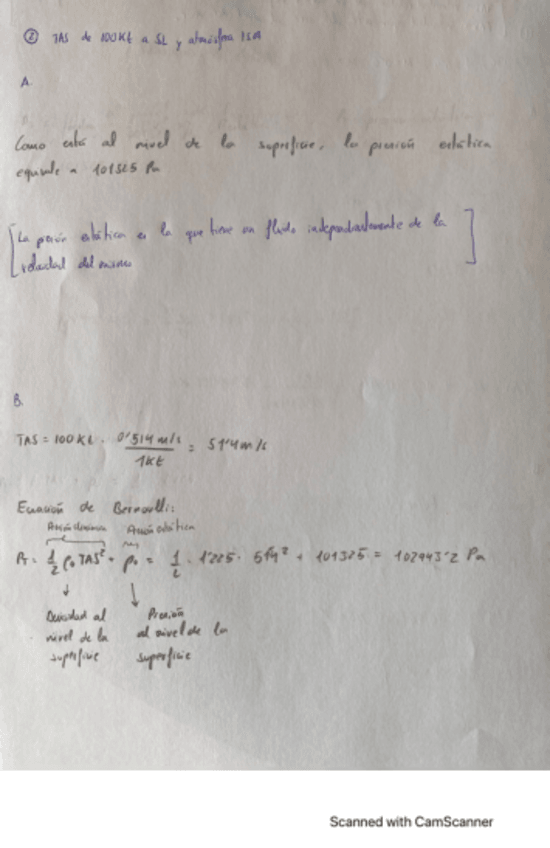 ② TAS de 100Kt a SL y atmósfera ISA
A.
Como está al nivel de la superficie, la presión estática
equivale a 101325 Pa
[La presión estática es la que tiene un fluido independientemente de la
velocidad del mismo]
B.
TAS = 100Kt · 0'514 m/s / 1Kt = 51'4 m/s
Ecuación de Bernoulli:
Presión dinámica Presión estática
PT = 1/2 ρ₀ TAS² + p₀ = 1/2 · 1'225 · 51'4² + 101325 = 102943'2 Pa
Densidad al Presión
nivel de la al nivel de la
superficie superficie
Scanned with CamScanner